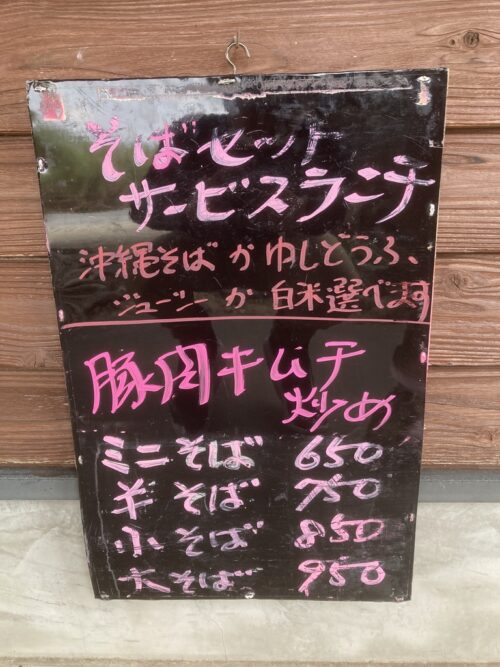 そばセット
サービスランチ
沖縄そば か ゆしどうふ、
ジューシー か 白米選べます
豚肉キムチ
炒め
ミニそば 650
半そば 750
小そば 850
大そば 950